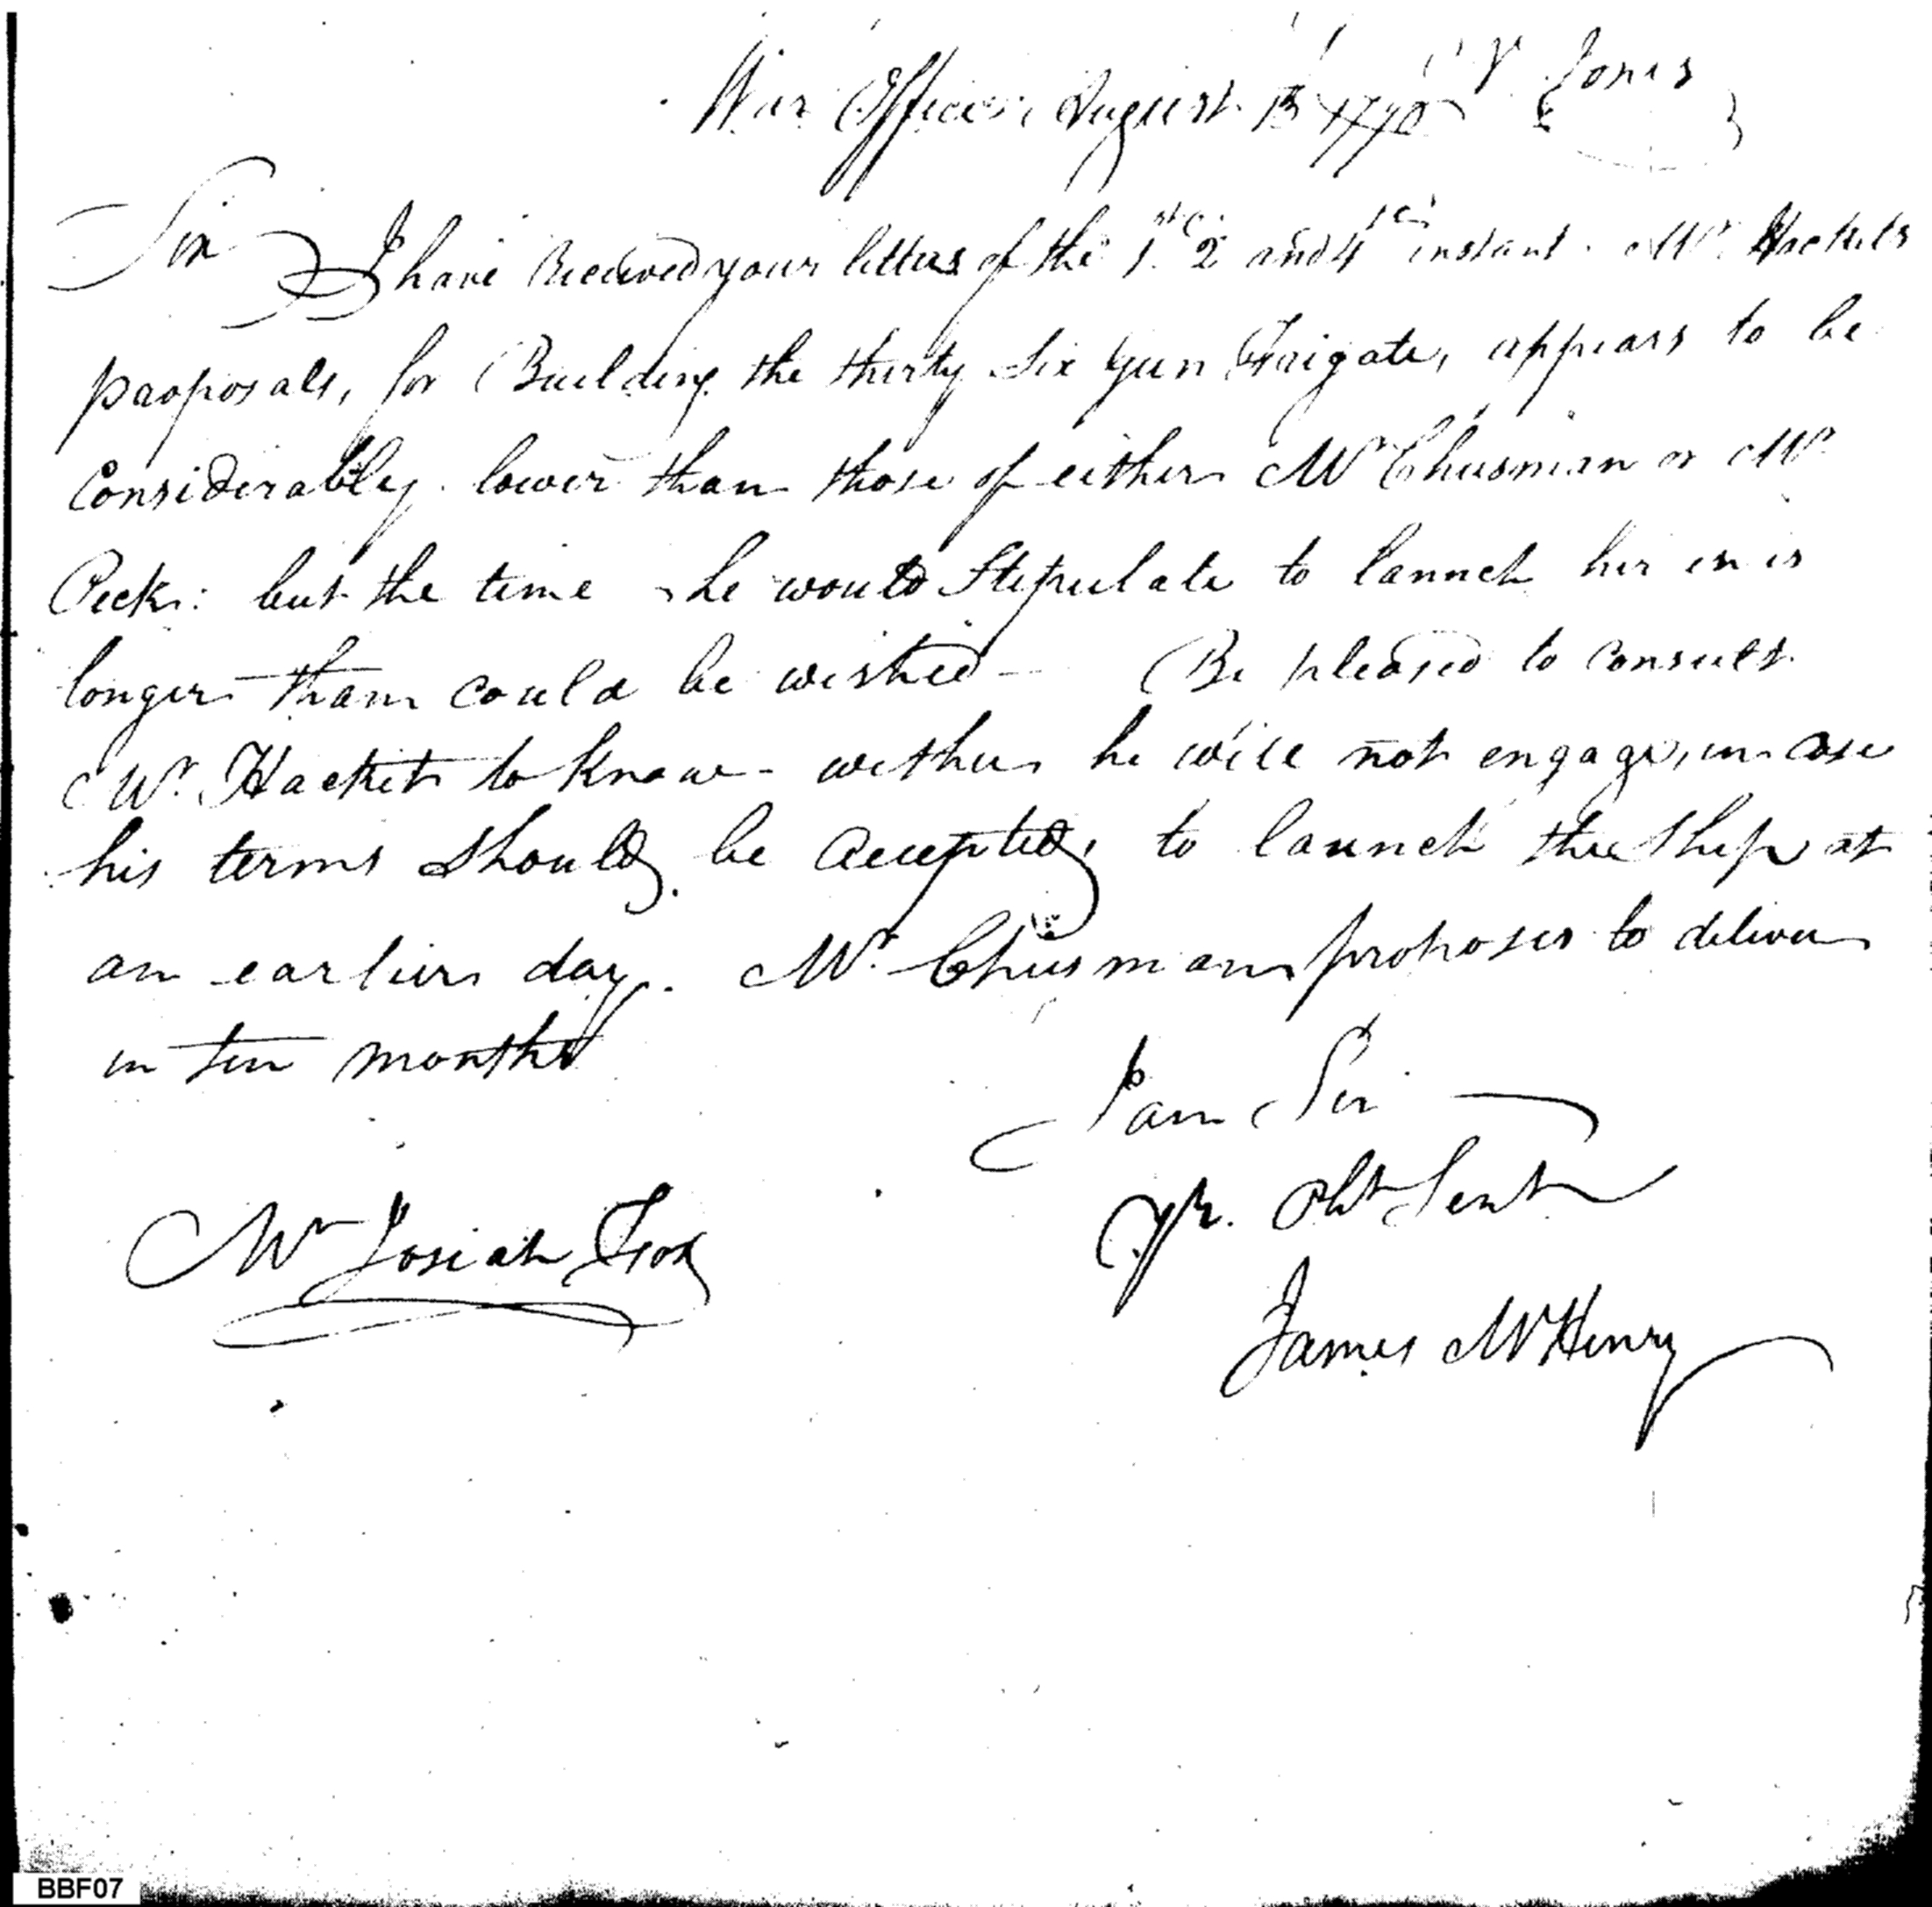 War Office, August 13 1798
Jones
Sir I have Received your letters of the 1st 2d and 4th instant. Mr. Hackets
proposals, for Building the thirty six gun Frigate, appears to be
Considerably lower than those of either Mr Cheesman or Mr
Peck: but the time he would Stipulate to launch her in is
longer than could be wished - Be pleased to Consult
Mr. Hacket to know wether he will not engage, in case
his terms should be accepted, to launch the ship at
an earlier day. Mr. Cheesman proposes to deliver
in ten months
I am Sir
Yr. Obt Servt
Mr Josiah Fox
James McHenry
BBF07